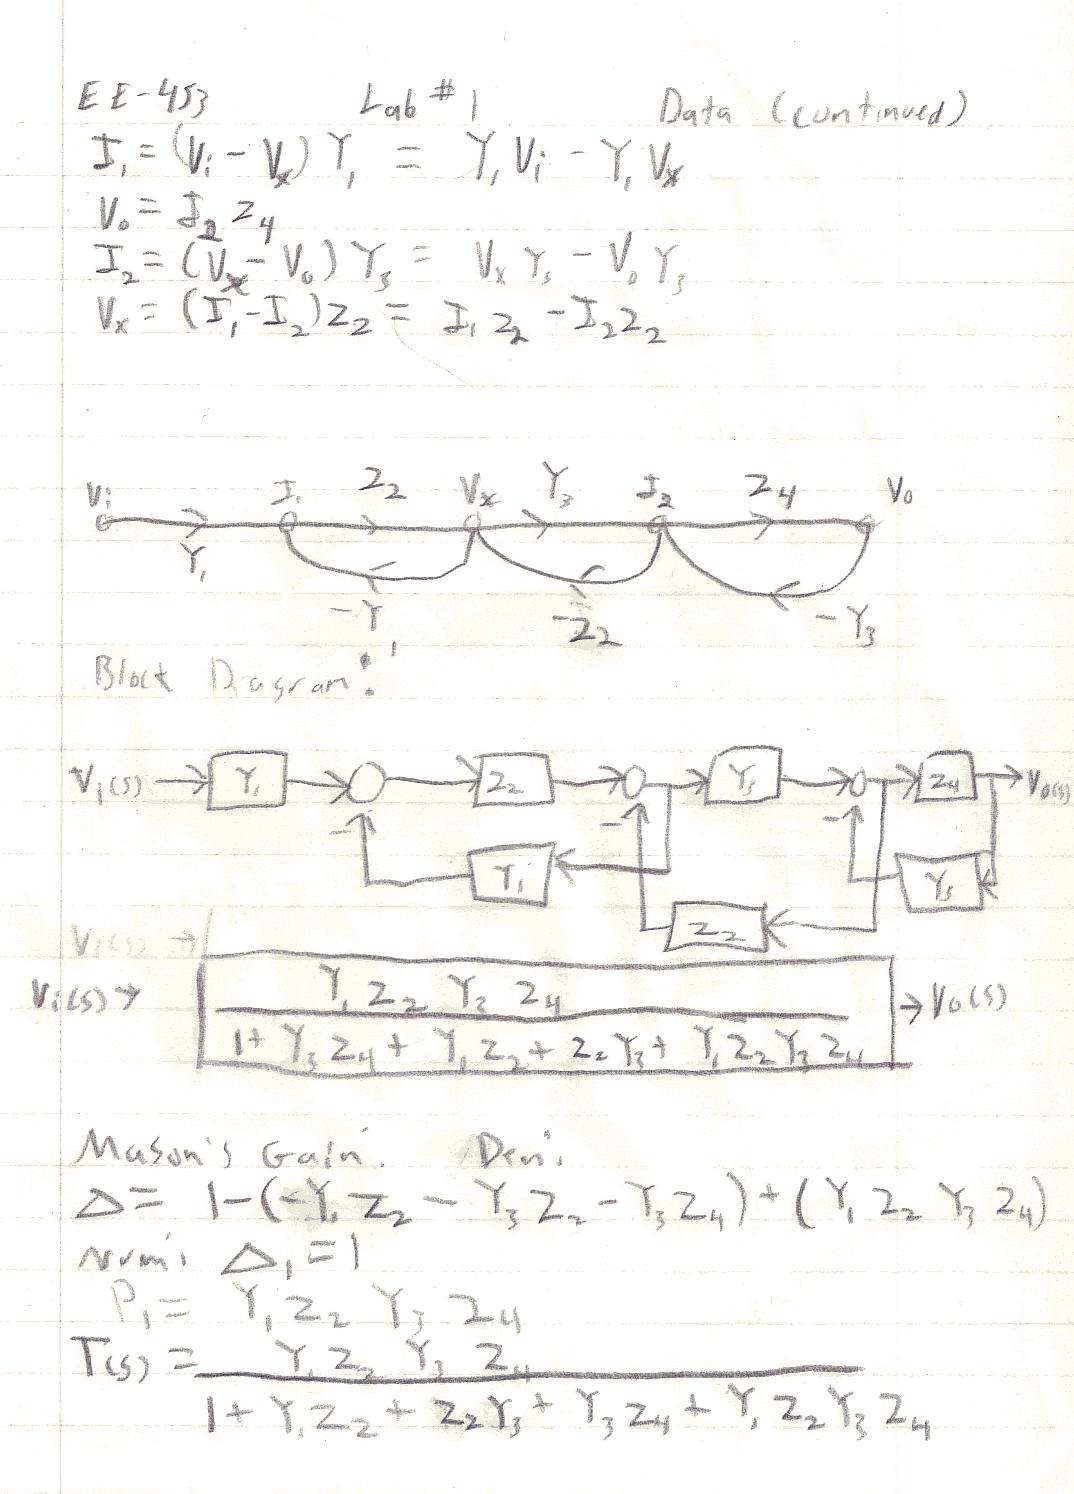 EE-453 Lab #1 Data (continued)
I₁ = (Vi - Vx) Y₁ = Y₁ Vi - Y₁ Vx
Vo = I₂ Z₄
I₂ = (Vx - Vo) Y₃ = Vx Y₃ - Vo Y₃
Vx = (I₁ - I₂) Z₂ = I₁ Z₂ - I₂ Z₂
Vi I₁ Z₂ Vx Y₃ I₂ Z₄ Vo
Y₁
-Y₁ -Z₂ -Y₃
Block Diagram:
Vi(s) → Y₁ Z₂ Y₃ Z₄ → Vo(s)
- - -
Y₁ Y₃
Z₂
Vi(s) →
Y₁ Z₂ Y₃ Z₄
Vi(s) → → Vo(s)
1 + Y₃ Z₄ + Y₁ Z₂ + Z₂ Y₃ + Y₁ Z₂ Y₃ Z₄
Mason's Gain: Den:
Δ = 1 - (-Y₁ Z₂ - Y₃ Z₂ - Y₃ Z₄) + (Y₁ Z₂ Y₃ Z₄)
Num: Δ₁ = 1
P₁ = Y₁ Z₂ Y₃ Z₄
T(s) = Y₁ Z₂ Y₃ Z₄
1 + Y₁ Z₂ + Z₂ Y₃ + Y₃ Z₄ + Y₁ Z₂ Y₃ Z₄